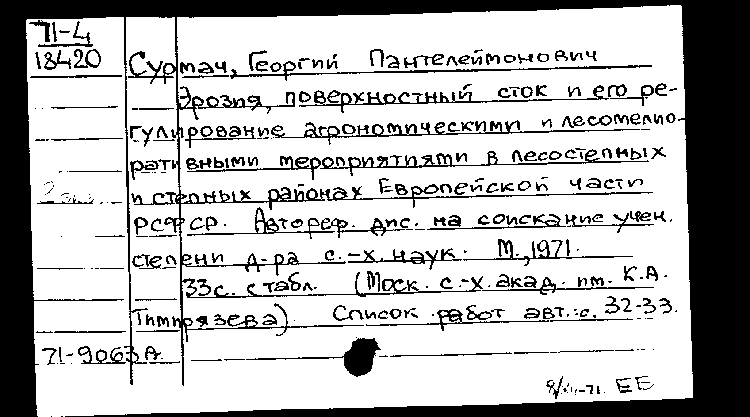 71-4
18420
Сурмач, Георгий Пантелеймонович
Эрозия, поверхностный сток и его ре-
гулирование агрономическими и лесомелио-
ративными мероприятиями в лесостепных
и степных районах Европейской части
РСФСР. Автореф. дис. на соискание учен.
степени д-ра с.-х. наук. М., 1971.
33с. с табл. (Моск. с.-х. акад. им. К.А.
Тимирязева). Список работ авт.: с. 32-33.
71-9063А
ЕЕ